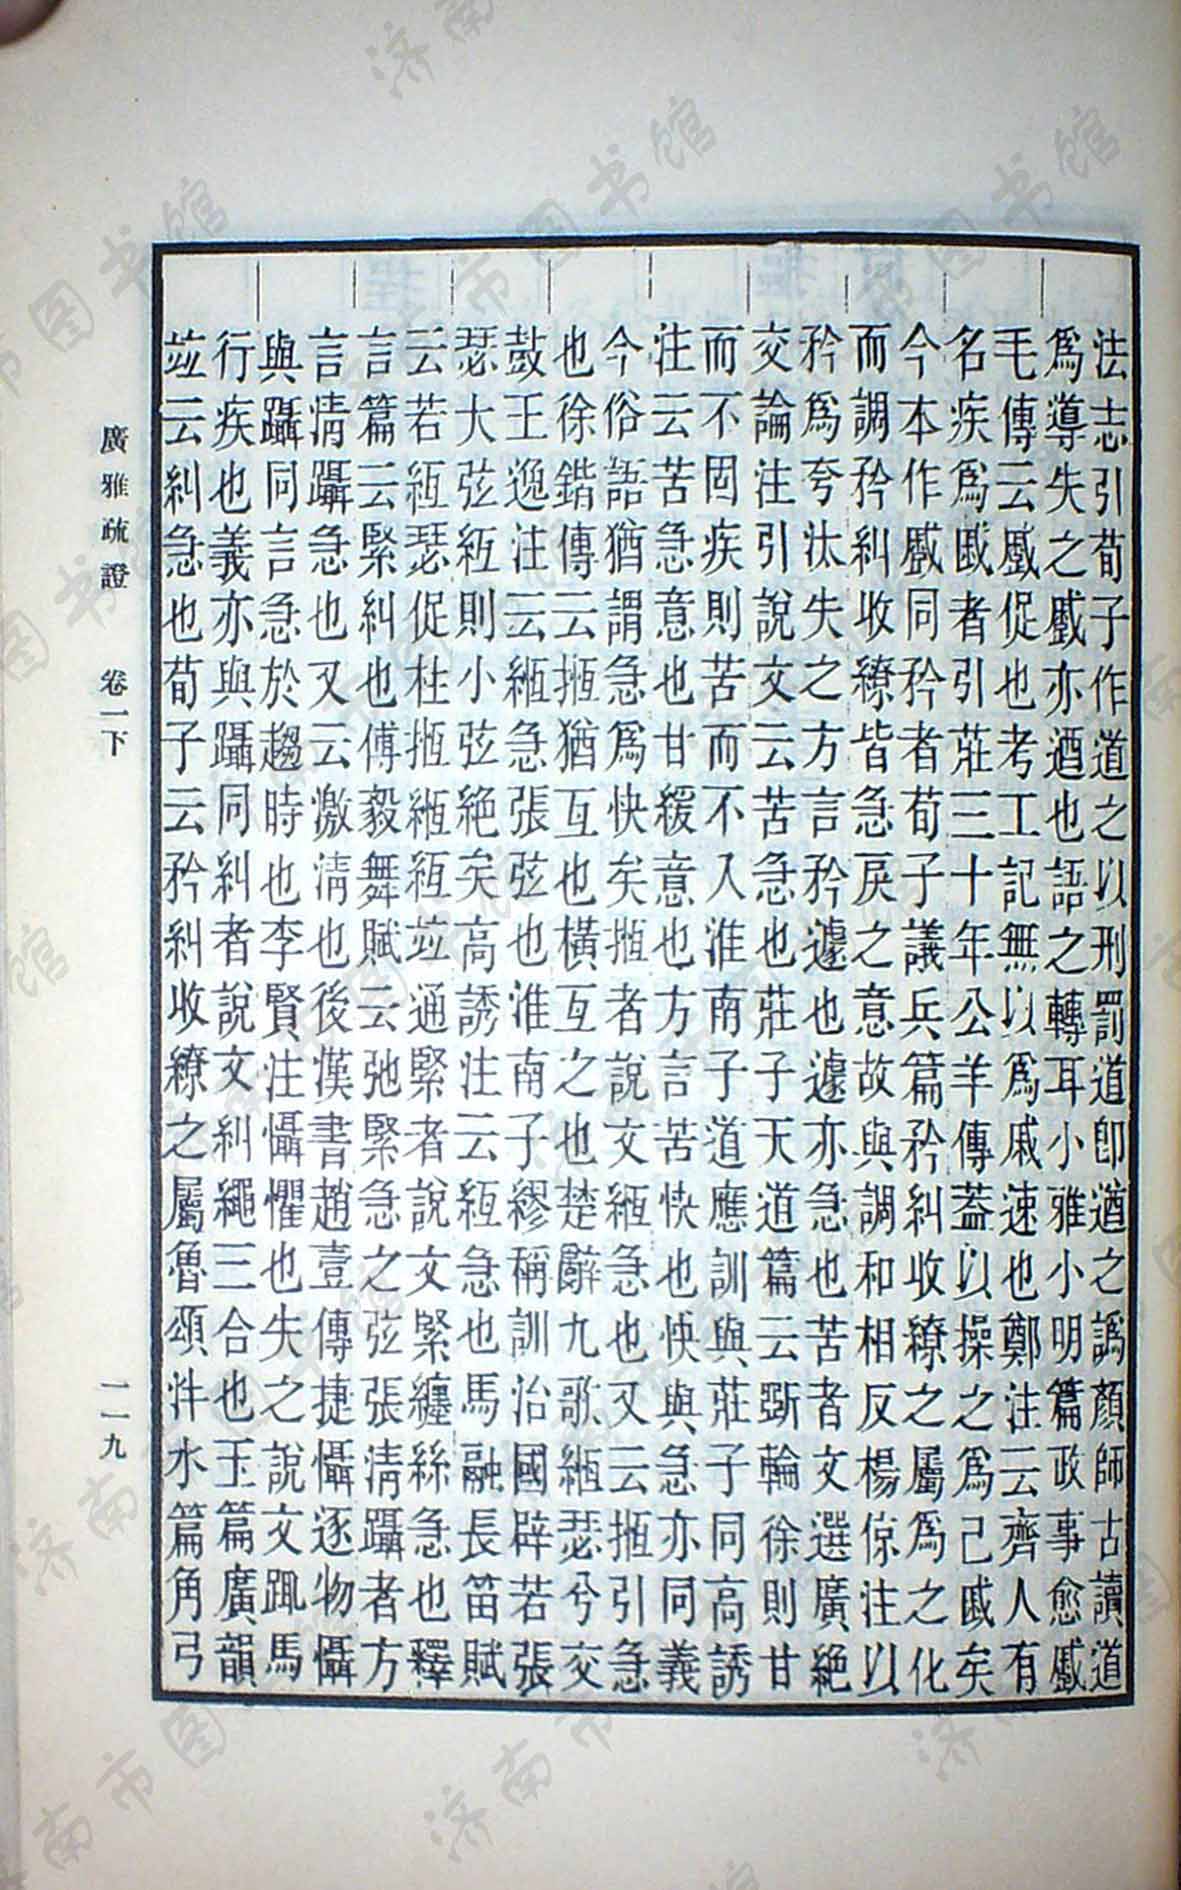 法志引荀子作道之以刑罰道卽遒之譌顏師古讀道
爲導失之蹙亦遒也語之轉耳小雅小明篇政事愈蹙
毛傳云蹙促也考工記無以爲戚速也鄭注云齊人有
名疾爲戚者引莊三十年公羊傳蓋以操之爲已戚矣
今本作蹙同矜者荀子議兵篇矜糾收繚之屬爲之化
而調矜糾收繚皆急戾之意故與調和相反楊倞注以
矜爲夸汰失之方言矜遽也遽亦急也苦者文選廣絶
交論注引說文云苦急也莊子天道篇云斲輪徐則甘
而不固疾則苦而不入淮南子道應訓與莊子同高誘
注云苦急意也甘緩意也方言苦快也快與急亦同義
今俗語猶謂急爲快矣搄者說文緪急也又云搄引急
也徐鍇傳云搄猶亙也橫亙之也楚辭九歌緪瑟兮交
鼓王逸注云緪急張弦也淮南子繆稱訓治國辟若張
瑟大弦絚則小弦絶矣高誘注云絚急也馬融長笛賦
云若絚瑟促柱搄緪絚竝通緊者說文緊纏絲急也釋
言篇云緊糾也傅毅舞賦云弛緊急之弦張淸躡者方
言淸躡急也又云激淸也後漢書趙壹傳捷懾逐物懾
與躡同言急於趨時也李賢注懾懼也失之說文踂馬
行疾也義亦與躡同糾者說文糾繩三合也玉篇廣韻
竝云糾急也荀子云矜糾收繚之屬魯頌泮水篇角弓
廣雅疏證 卷一下 一一九